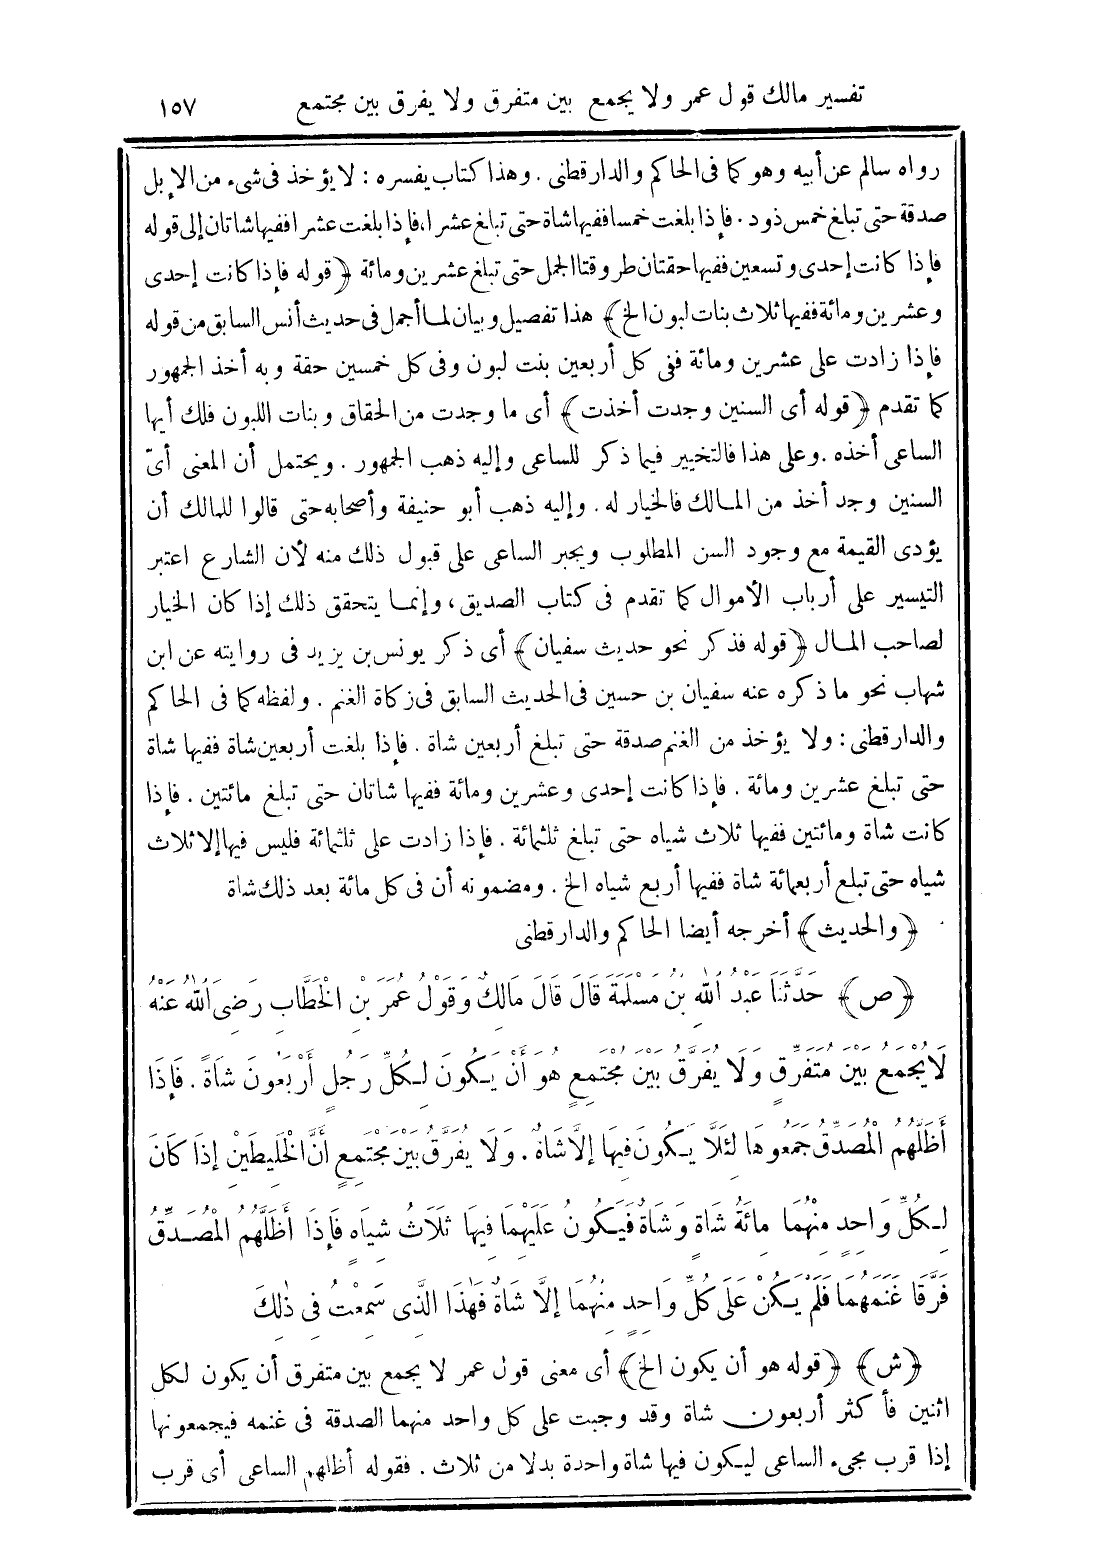 تفسير مالك قول عمر ولا يجمع بين متفرق ولا يفرق بين مجتمع ١٥٧
رواه سالم عن أبيه وهو كما فى الحاكم والدارقطنى . وهذا كتاب يفسره : لا يؤخذ فى شىء من الإبل
صدقة حتى تبلغ خمس ذود . فإذا بلغت خمسا ففيها شاة حتى تبلغ عشرا، فإذا بلغت عشرا ففيها شاتان إلى قوله
فإذا كانت إحدى وتسعين ففيها حقتان طروقتا الجمل حتى تبلغ عشرين ومائة ﴿قوله فإذا كانت إحدى
وعشرين ومائة ففيها ثلاث بنات لبون الخ﴾ هذا تفصيل وبيان لما أجمل فى حديث أنس السابق من قوله
فإذا زادت على عشرين ومائة ففى كل أربعين بنت لبون وفى كل خمسين حقة وبه أخذ الجمهور
كما تقدم ﴿قوله أى السنين وجدت أخذت﴾ أى ما وجدت من الحقاق وبنات اللبون فلك أيها
الساعى أخذه . وعلى هذا فالتخيير فيما ذكر للساعى وإليه ذهب الجمهور . ويحتمل أن المعنى أىّ
السنين وجد أخذ من المالك فالخيار له . وإليه ذهب أبو حنيفة وأصحابه حتى قالوا للمالك أن
يؤدى القيمة مع وجود السن المطلوب ويجبر الساعى على قبول ذلك منه لأن الشارع اعتبر
التيسير على أرباب الأموال كما تقدم فى كتاب الصديق، وإنما يتحقق ذلك إذا كان الخيار
لصاحب المال ﴿قوله فذكر نحو حديث سفيان﴾ أى ذكر يونس بن يزيد فى روايته عن ابن
شهاب نحو ما ذكره عنه سفيان بن حسين فى الحديث السابق فى زكاة الغنم . ولفظه كما فى الحاكم
والدارقطنى : ولا يؤخذ من الغنم صدقة حتى تبلغ أربعين شاة . فإذا بلغت أربعين شاة ففيها شاة
حتى تبلغ عشرين ومائة . فإذا كانت إحدى وعشرين ومائة ففيها شاتان حتى تبلغ مائتين . فإذا
كانت شاة ومائتين ففيها ثلاث شياه حتى تبلغ ثلثمائة . فإذا زادت على ثلثمائة فليس فيها إلا ثلاث
شياه حتى تبلغ أربعمائة شاة ففيها أربع شياه الخ . ومضمونه أن فى كل مائة بعد ذلك شاة
﴿والحديث﴾ أخرجه أيضا الحاكم والدارقطنى
﴿ص﴾ حَدَّثَنَا عَبْدُ اللهِ بْنُ مَسْلَمَةَ قَالَ قَالَ مَالِكٌ وَقَوْلُ عُمَرَ بْنِ الْخَطَّابِ رَضِىَ اللهُ عَنْهُ
لَا يُجْمَعُ بَيْنَ مُتَفَرِّقٍ وَلَا يُفَرَّقُ بَيْنَ مُجْتَمِعٍ هُوَ أَنْ يَكُونَ لِكُلِّ رَجُلٍ أَرْبَعُونَ شَاةً . فَإِذَا
أَظَلَّهُمُ الْمُصَدِّقُ جَمَعُوهَا لِئَلَّا يَكُونَ فِيهَا إِلَّا شَاةٌ . وَلَا يُفَرَّقُ بَيْنَ مُجْتَمِعٍ أَنَّ الْخَلِيطَيْنِ إِذَا كَانَ
لِكُلِّ وَاحِدٍ مِنْهُمَا مِائَةُ شَاةٍ وَشَاةٌ فَيَكُونُ عَلَيْهِمَا فِيهَا ثَلَاثُ شِيَاهٍ فَإِذَا أَظَلَّهُمُ الْمُصَدِّقُ
فَرَّقَا غَنَمَهُمَا فَلَمْ يَكُنْ عَلَى كُلِّ وَاحِدٍ مِنْهُمَا إِلَّا شَاةٌ فَهٰذَا الَّذِى سَمِعْتُ فِى ذٰلِكَ
﴿ش﴾ ﴿قوله هو أن يكون الخ﴾ أى معنى قول عمر لا يجمع بين متفرق أن يكون لكل
اثنين فأكثر أربعون شاة وقد وجبت على كل واحد منهما الصدقة فى غنمه فيجمعونها
إذا قرب مجىء الساعى ليكون فيها شاة واحدة بدلا من ثلاث . فقوله أظلهم الساعى أى قرب